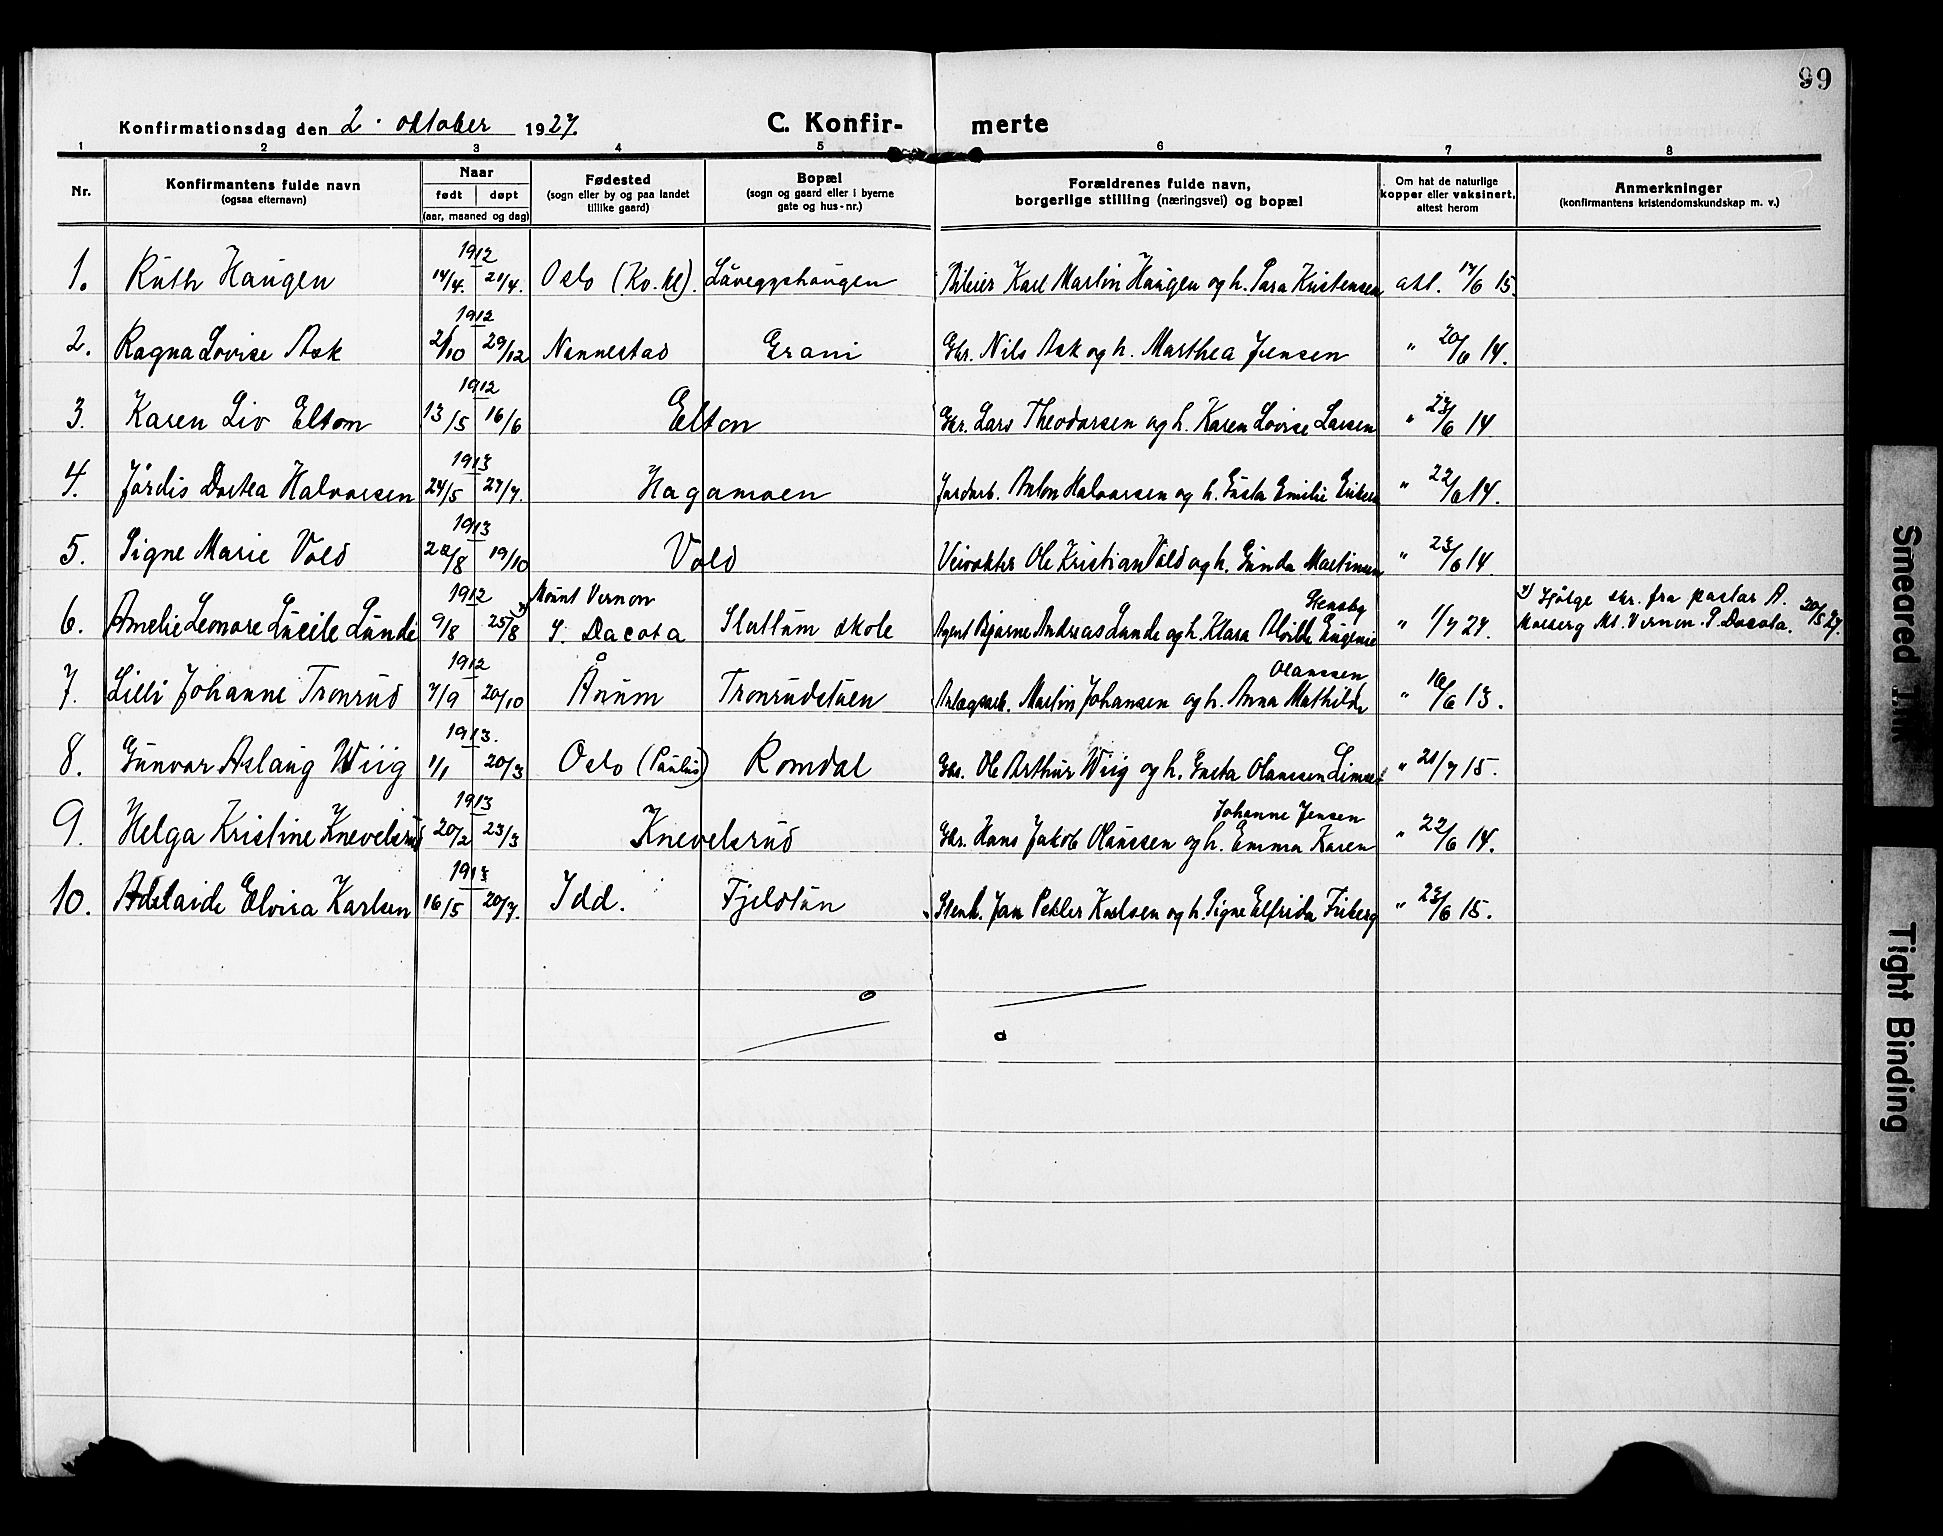 99
Konfirmationsdag den 2. oktober 1927.
C. Konfir- merte
1 2 3 4 5 6 7 8
Nr.
Konfirmantens fulde navn
(ogsaa efternavn)
Naar
født døpt
(aar, maaned og dag)
Fødested
(sogn eller by og paa landet
tillike gaard)
Bopæl
(sogn og gaard eller i byerne
gate og hus-nr.)
Forældrenes fulde navn,
borgerlige stilling (næringsvei) og bopæl
Om hat de naturlige
kopper eller vaksinert,
attest herom
Anmerkninger
(konfirmantens kristendomskundskap m. v.)
1912
1. Ruth Haugen 14/4. 21/4. Oslo Låveggshaugen Karl Martin Haugen og h. Kristensen att. 15.
1912
2. Ragna Lovise Ask 2/10 29/12 Nannestad Grani Gbr. Nils Ask og h. Marthea Jensen " 20/6 14.
1912
3. Karen Liv Elton 13/5 16/6 Elton Gbr. Lars Theodorsen og h. Karen Lovise Larsen " 23/6 14.
1913
4. Jørdis Dortea Halvorsen 24/5 27/7. Hagamoen Jordarb. Anton Halvorsen og h. Gusta Emilie Eriksen " 22/6 14.
1913
5. Signe Marie Vold 20/8 19/10 Vold Veivokter Ole Kristian Vold og h. Gunda Martinsen " 23/6 14.
1912 Mount Vernon Stensby x) Ifølge skr. fra pastor A.
6. Amelie Leonore Lucile Lunde 9/8 25/8 x) S. Dacota Slattum skole Agent Bjarne Andreas Lunde og h. Klara Eugenie " 1/7 27. Mt. Vernon. S. Dacota. 20/5 27.
1912 Olaussen
7. Lilli Johanne Tronrud 7/9 20/10 Årum Tronrudstuen Anlægsarb. Martin Johansen og h. Anna Mathilde " 16/6 13.
1913.
8. Gunvor Aslaug Wiig 1/1 20/3 Oslo (Paulus) Romdal Gbr. Ole Arthur Wiig og h. Gusta Olaussen " 21/7 15.
1913 Johanne Jensen
9. Helga Kristine Knevelsrud 20/2 23/3 Knevelsrud Gbr. Hans Jakob Olaussen og h. Emma Karen " 22/6 14.
1913
10. Adelaide Elvira Karlsen 16/5 20/7. Idd. Fjeldtun Stenh. Jan Karlsen og h. Signe Elfrida Friberg " 23/6 15.
Smeared Ink
Tight Binding